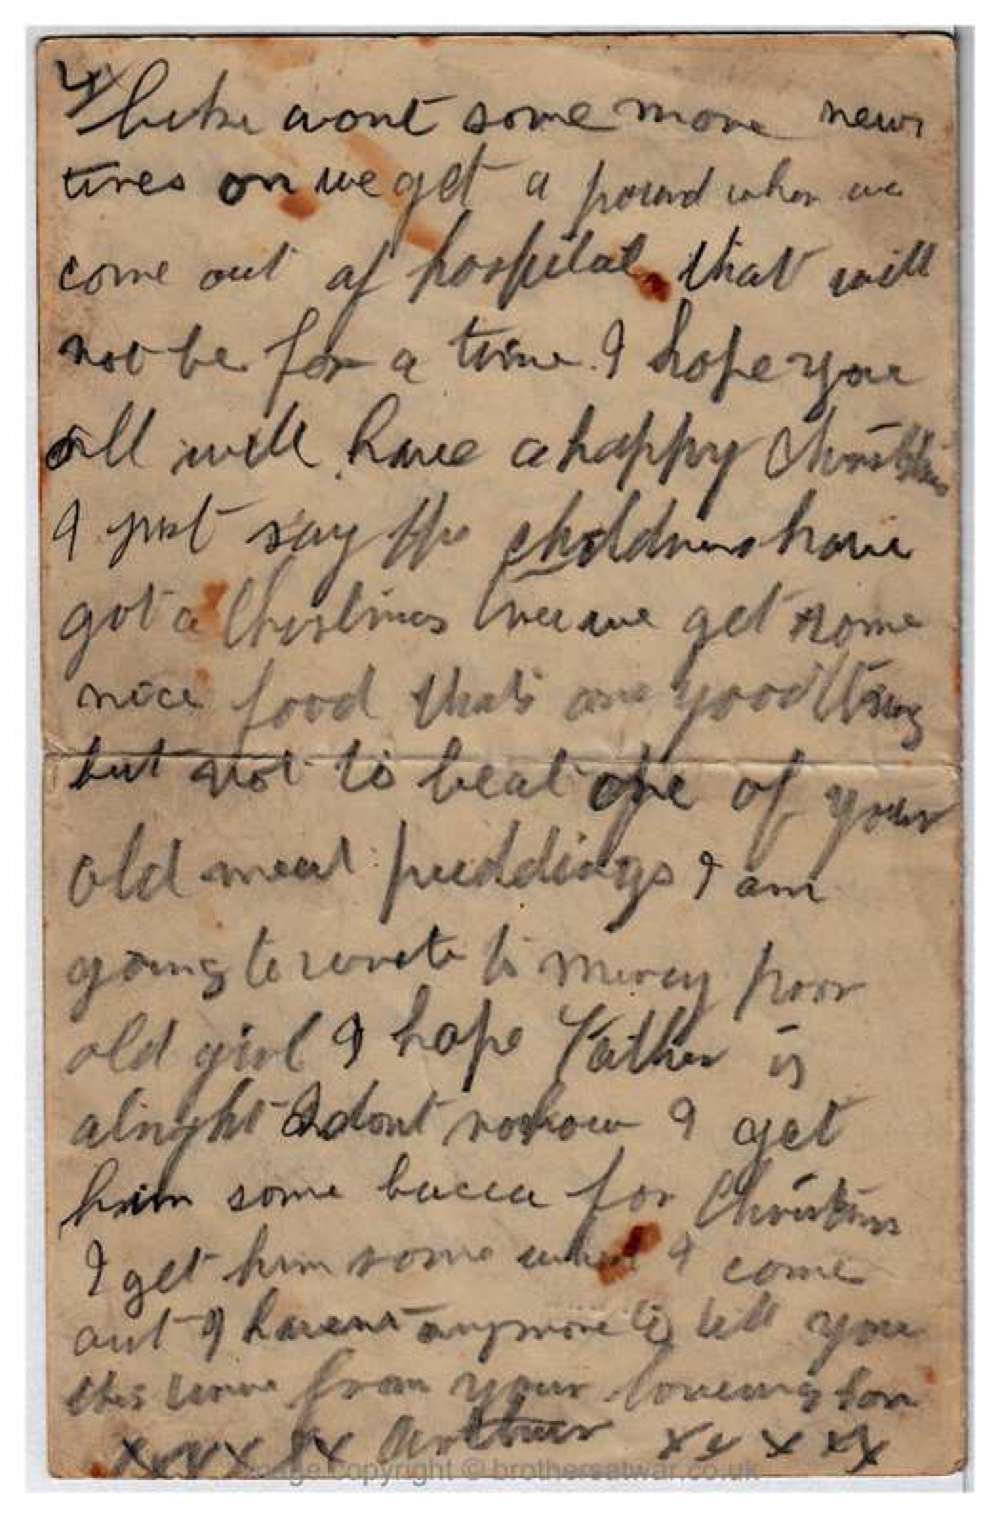 4
bike wont some more new
tires on we get a pound when we
come out of hospital that will
not be for a time. I hope you
all will have a happy Christmas
I just say the childrens have
got a Christmas tree we get some
nice food thats one good thing
but not to beat one of your
old meat puddings I am
going to write to Mercy poor
old girl I hope Father is
alright I dont no how I get
him some bacca for Christmas
I get him some when I come
out I havent anymore to tell you
this time from your loveing son
xxxxxx Arthur xxxxx
image copyright © brothersatwar.co.uk